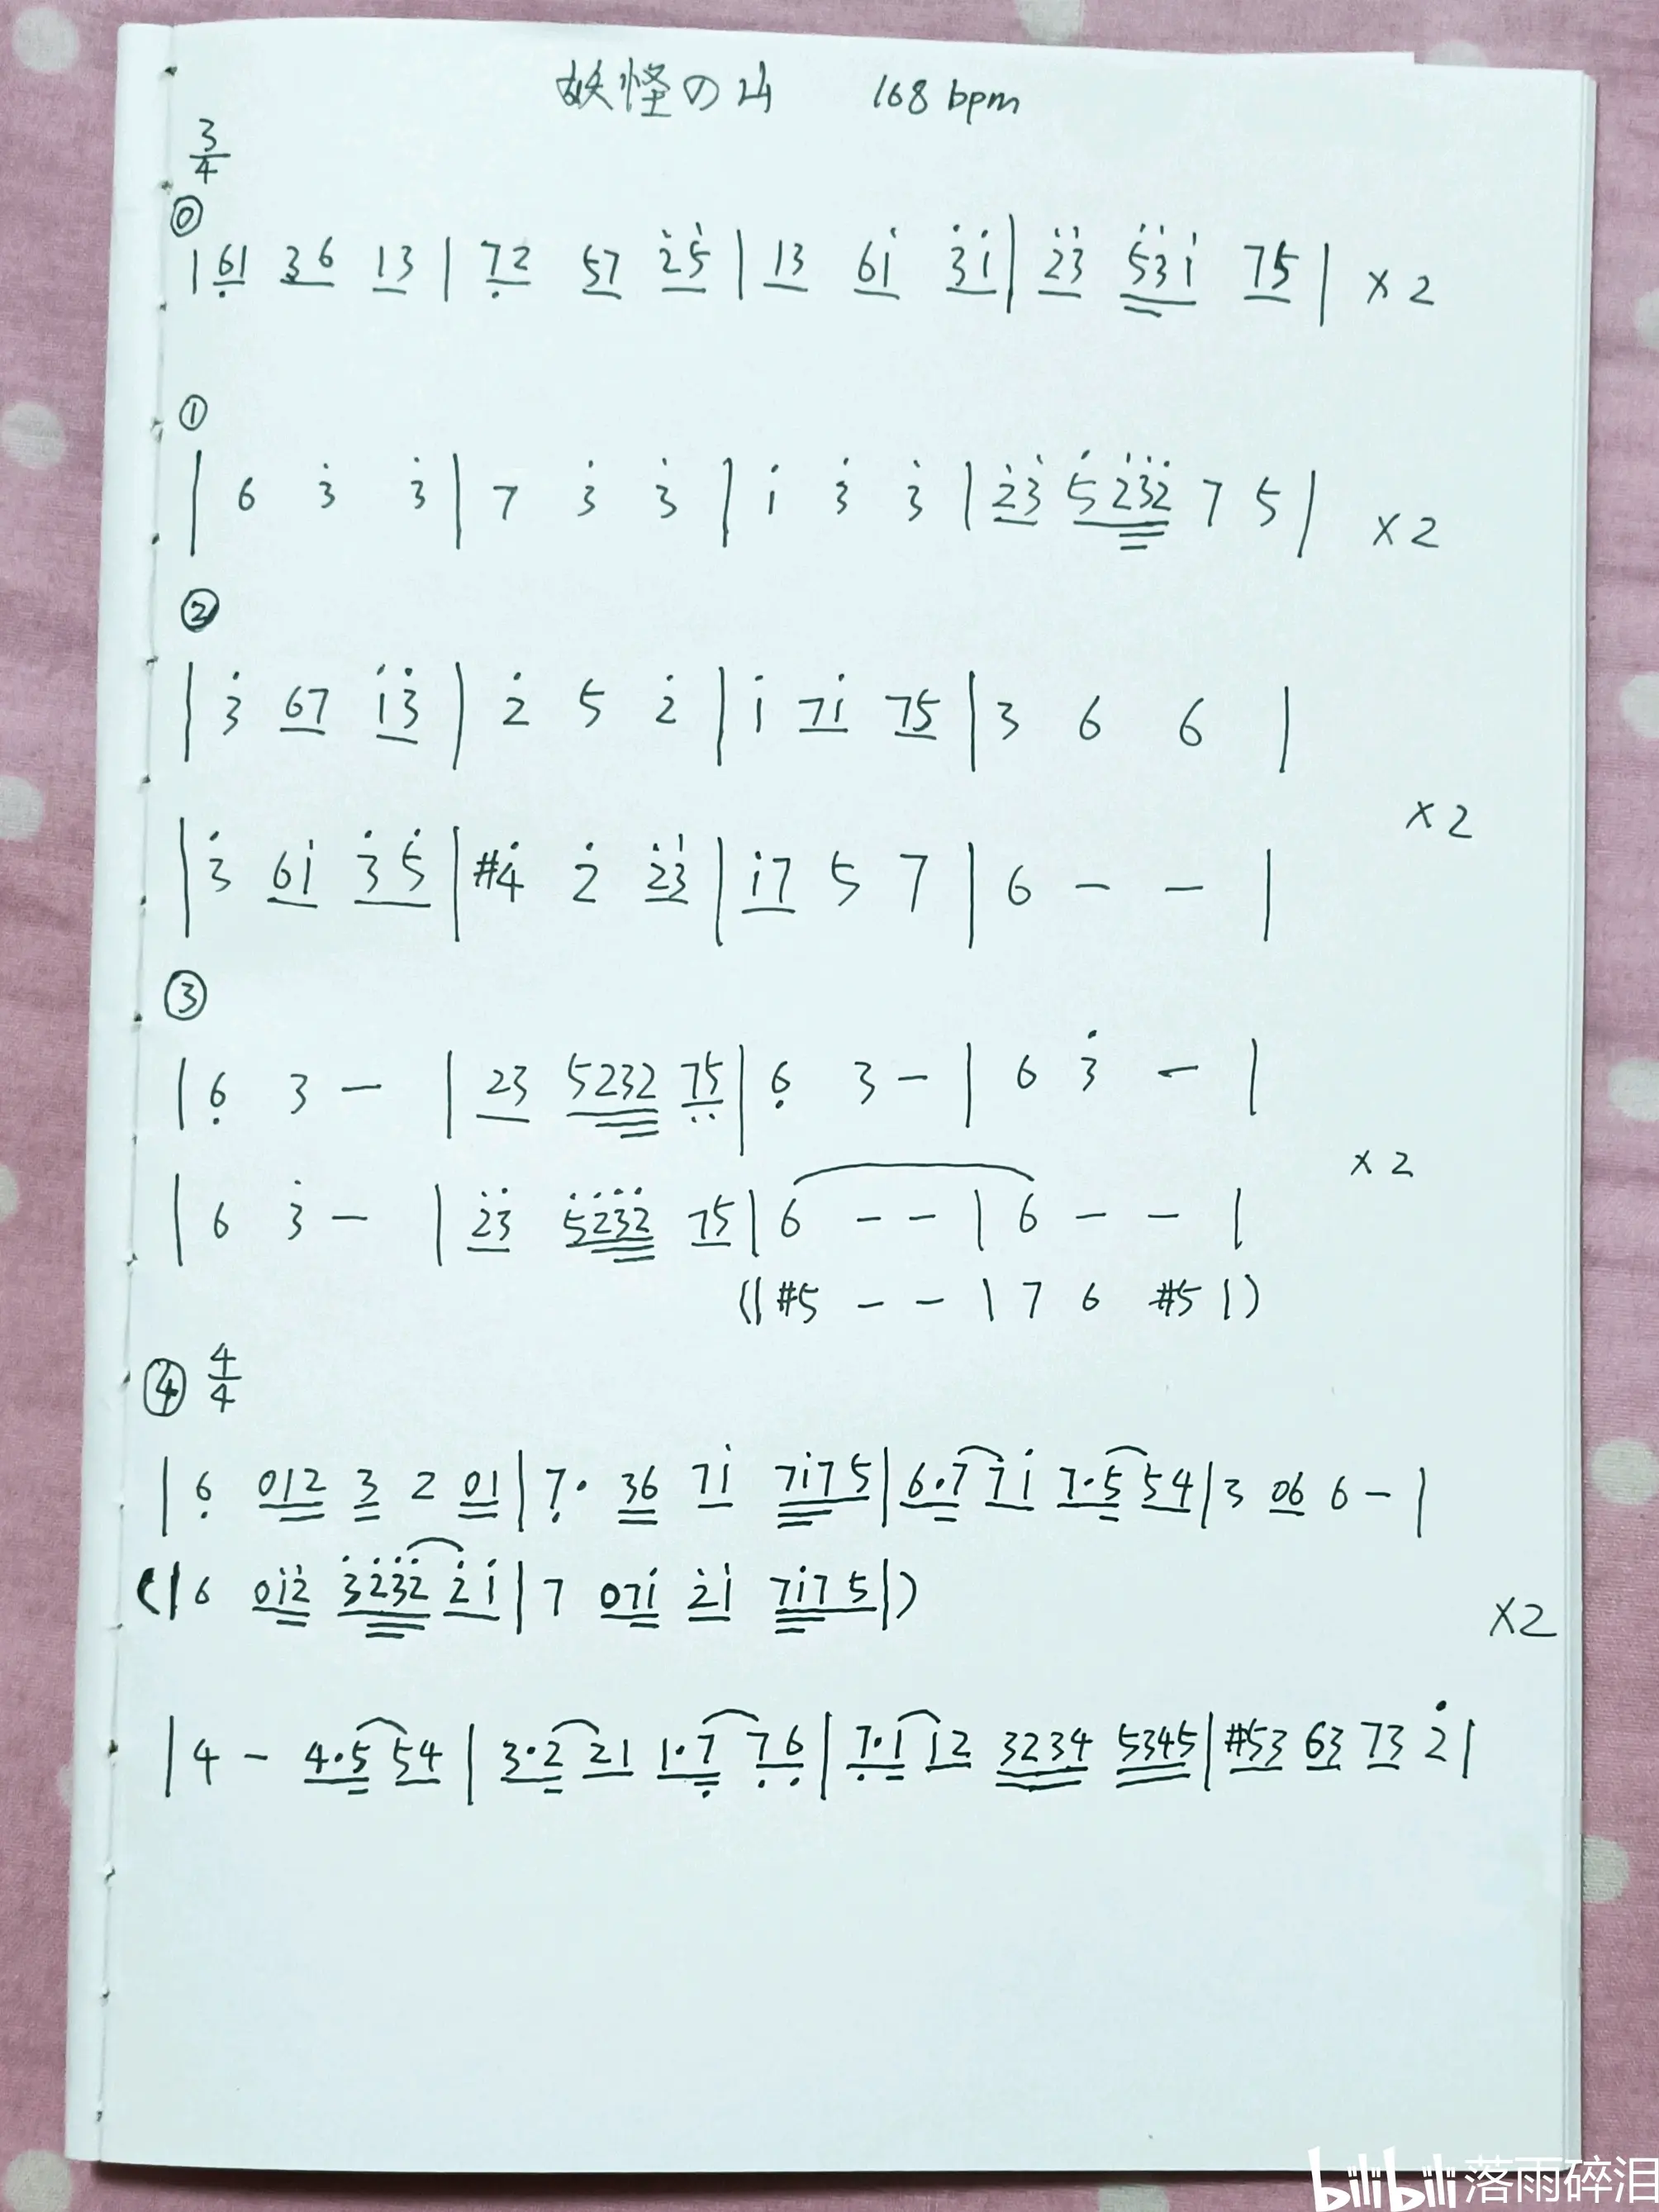 妖怪の山 168 bpm
3/4
⓪
| 6̣1 36 13 | 7̣2 57 2̇5̇ | 13 61̇ 3̇1̇ | 2̇3̇ 5̇3̇1̇ 75 | ×2
①
| 6 3̇ 3̇ | 7 3̇ 3̇ | 1̇ 3̇ 3̇ | 2̇3̇ 5̇2̇3̇2̇ 7 5 | ×2
②
| 3̇ 67 1̇3̇ | 2̇ 5 2̇ | 1̇ 71̇ 75 | 3 6 6 |
×2
| 3̇ 61̇ 3̇5̇ | #4̇ 2̇ 2̇3̇ | 1̇7 5 7 | 6 – – |
③
| 6̣ 3 – | 23 5232 7̣5̣ | 6̣ 3 – | 6 3̇ – |
×2
| 6 3̇ – | 2̇3̇ 5̇2̇3̇2̇ 75 | 6 – – | 6 – – |
(| #5 – – | 7 6 #5 |)
④ 4/4
| 6̣ 012 3 2 01 | 7̣· 36 71̇ 71̇75 | 6·7 71̇ 7·5 54 | 3 06 6 – |
(| 6 01̇2̇ 3̇2̇3̇2̇ 2̇1̇ | 7 071̇ 2̇1̇ 71̇75 |)
×2
| 4 – 4·5 54 | 3·2 21 1·7̣ 7̣6̣ | 7̣·1 12 3234 5345 | #53 63 73 2̇ |
bilibili 落雨碎泪